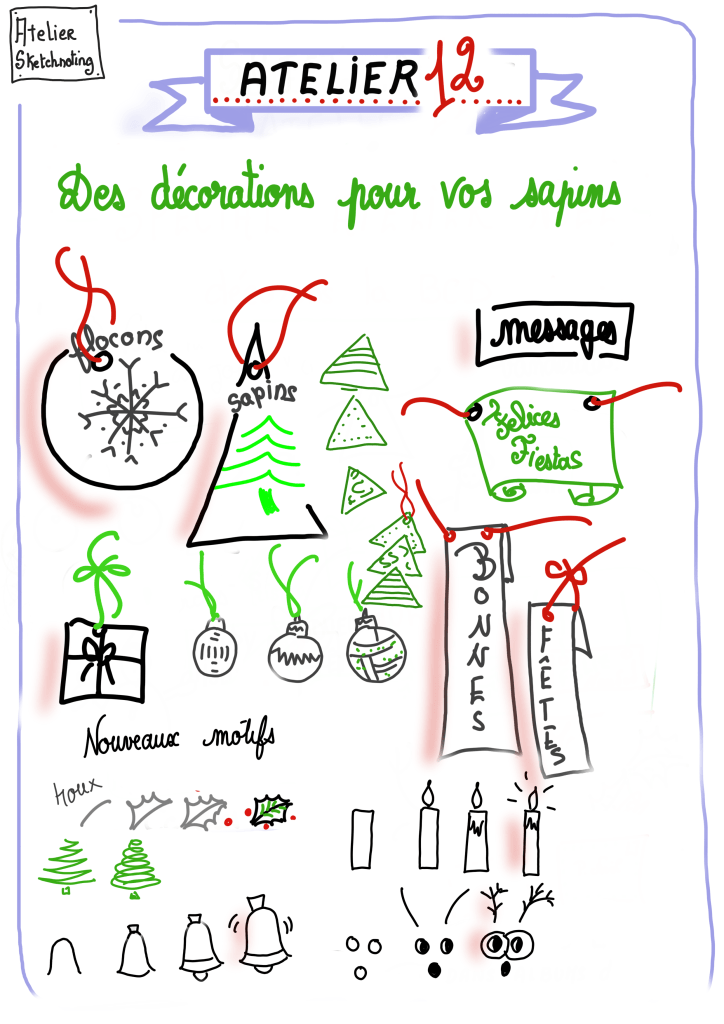 Atelier
Sketchnoting
ATELIER 12
Des décorations pour vos sapins
flocons
sapins
messages
Felices
Fiestas
BONNES
FÊTES
Nouveaux motifs
houx